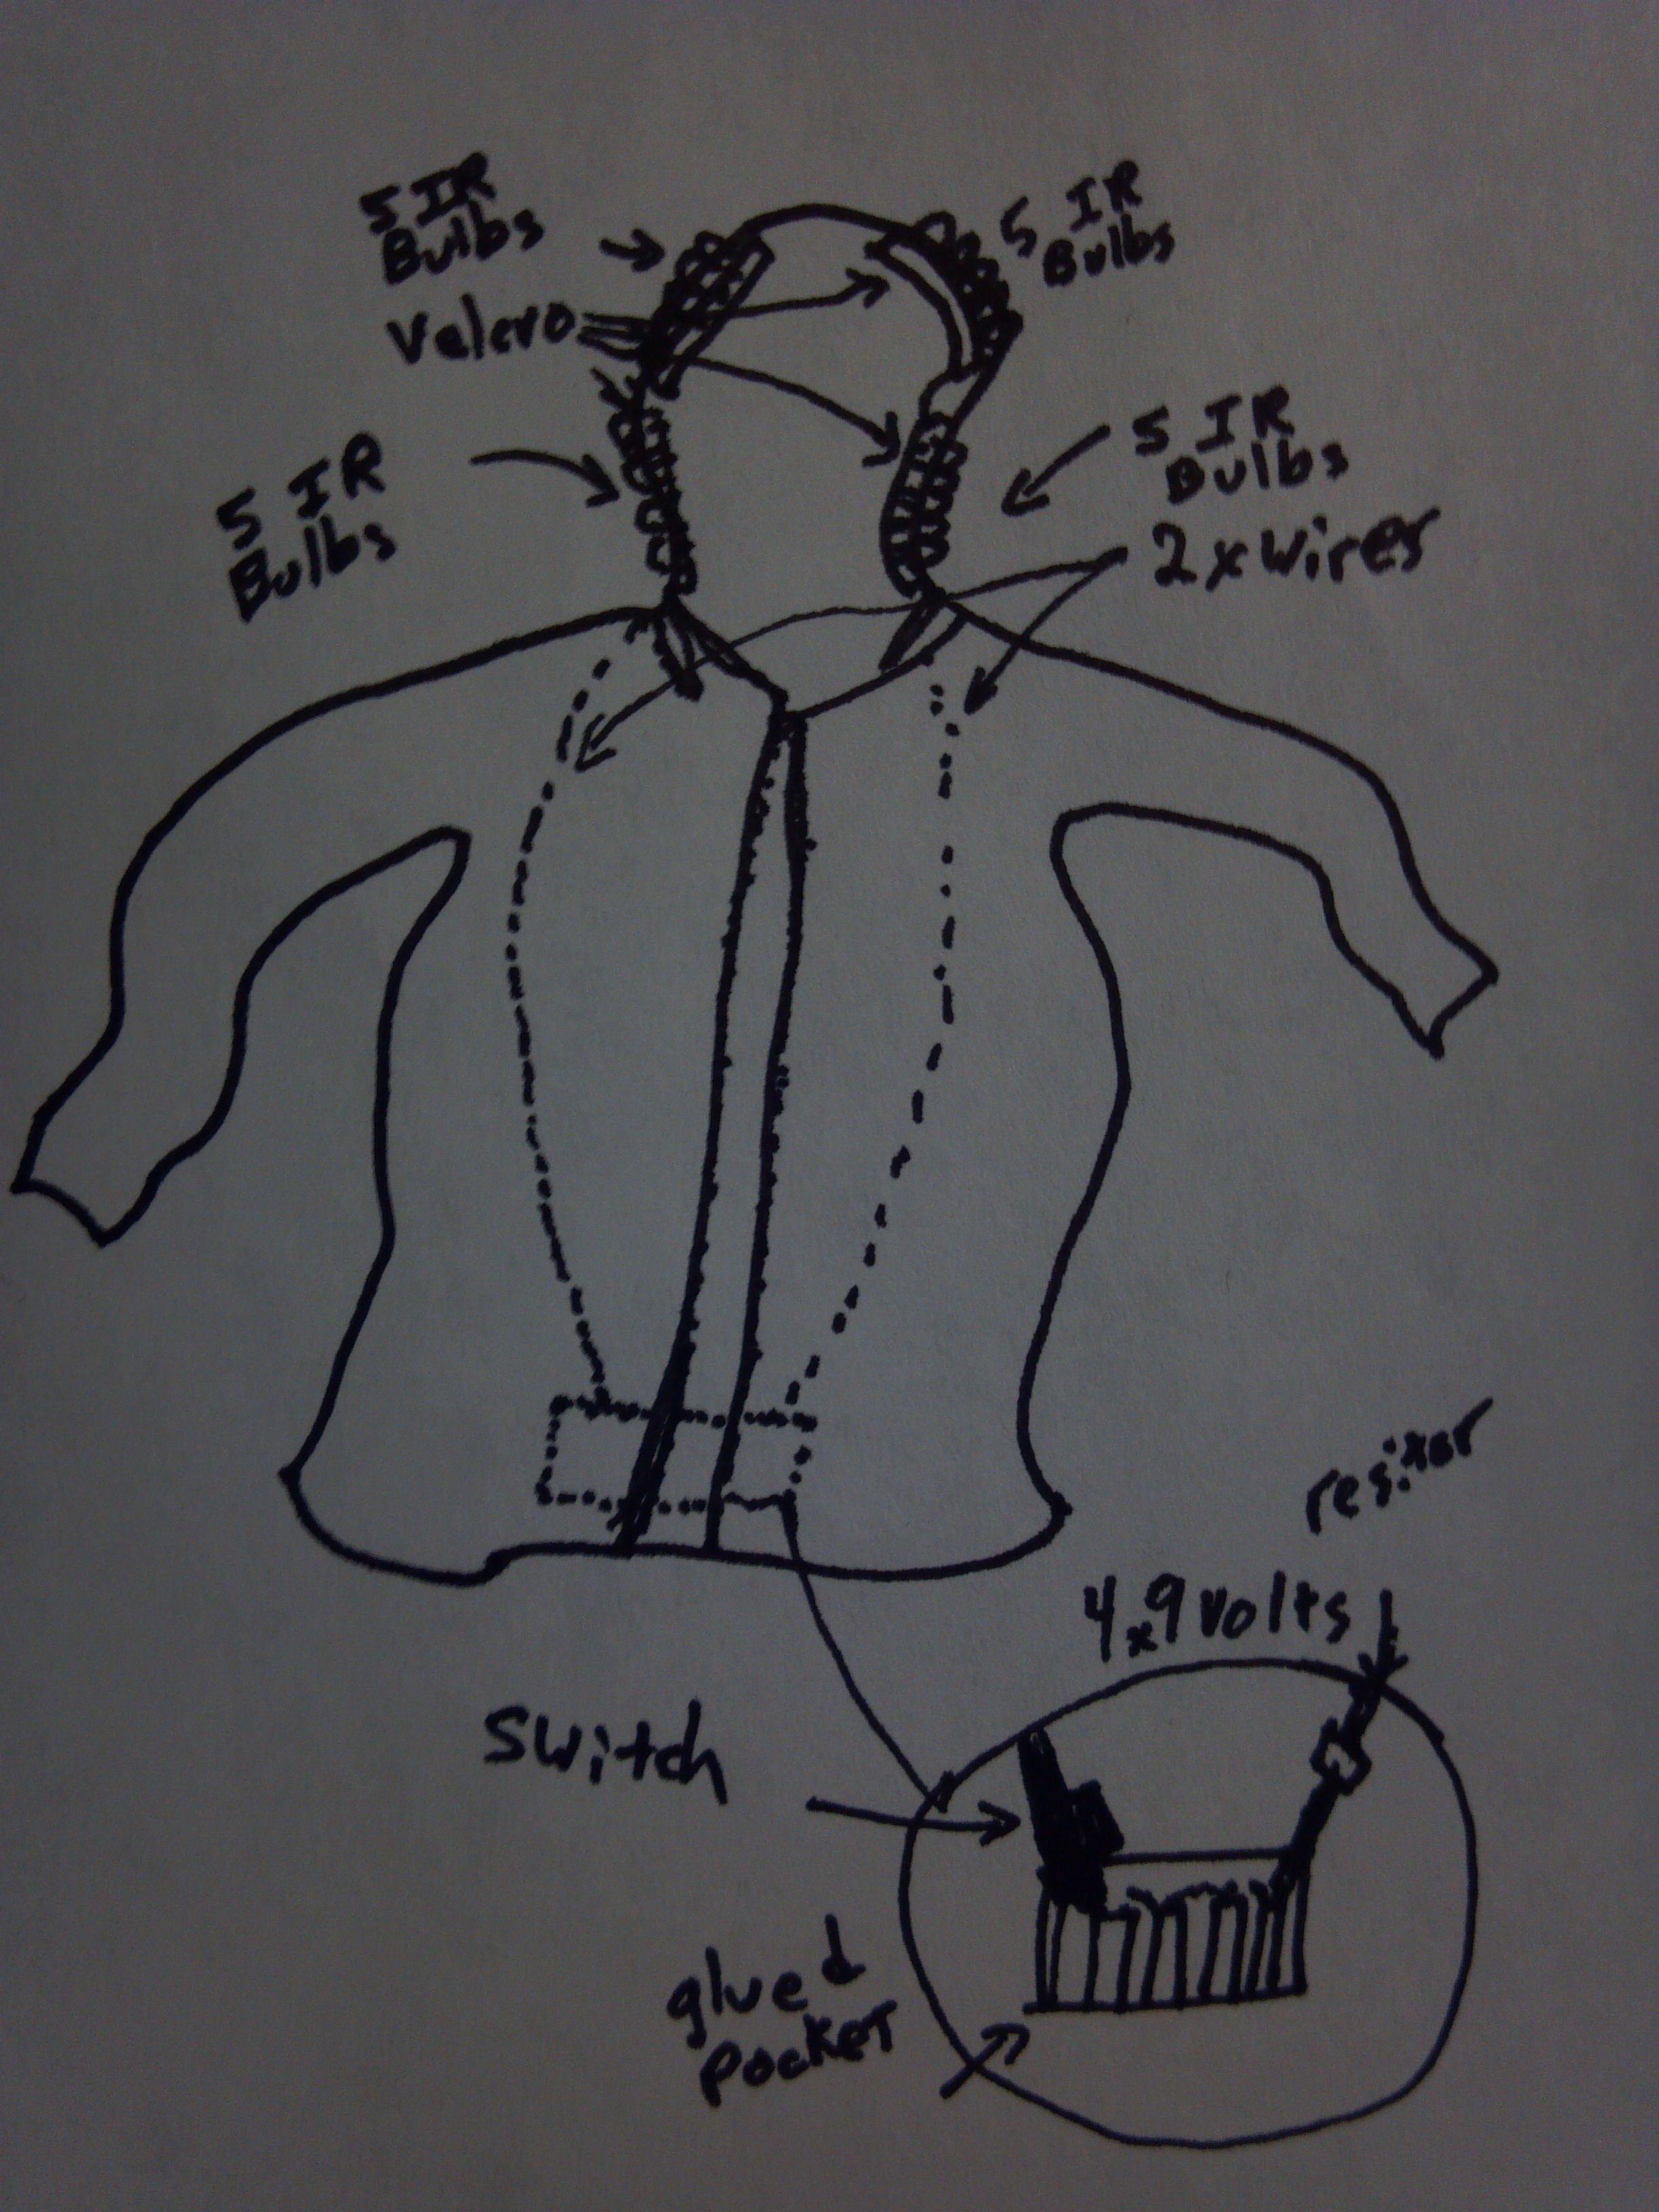 5 IR
Bulbs
5 IR
Bulbs
Velcro
5 IR
Bulbs
5 IR
Bulbs
2x wires
resitor
4x9 volts
switch
glued
pocket